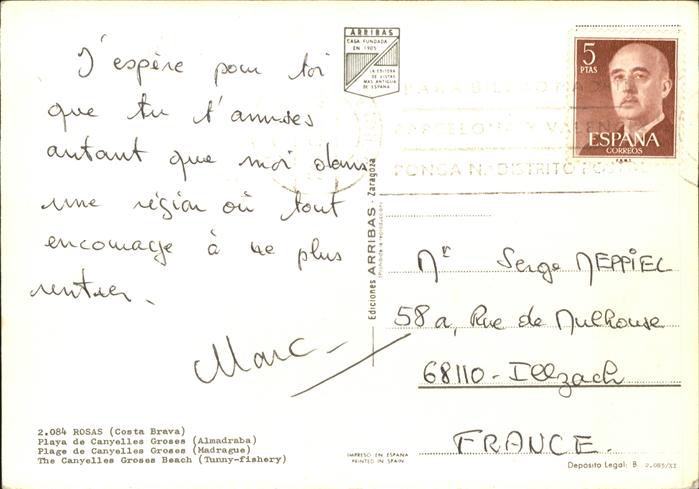 J'espère pour toi
que tu t'amuses
autant que moi dans
une région où tout
encourage à ne plus
rentrer.
Marc
2.084 ROSAS (Costa Brava)
Playa de Canyelles Groses (Almadraba)
Plage de Canyelles Groses (Madrague)
The Canyelles Groses Beach (Tunny-fishery)
ARRIBAS
CASA FUNDADA
EN 1905
LA EDITORA
DE VISTAS
MAS ANTIGUA
DE ESPAÑA
Ediciones ARRIBAS - Zaragoza
IMPRESO EN ESPAÑA
PRINTED IN SPAIN
5
PTAS
ESPAÑA
CORREOS
F.N.M.T.
PARA BILBAO MADRID
BARCELONA Y VALENCIA
PONGA Nº DISTRITO POSTAL
Mr Serge MEPPIEL
58a, Rue de Mulhouse
68110 - Illzach
FRANCE.
Depósito Legal: B. 2.085/XI